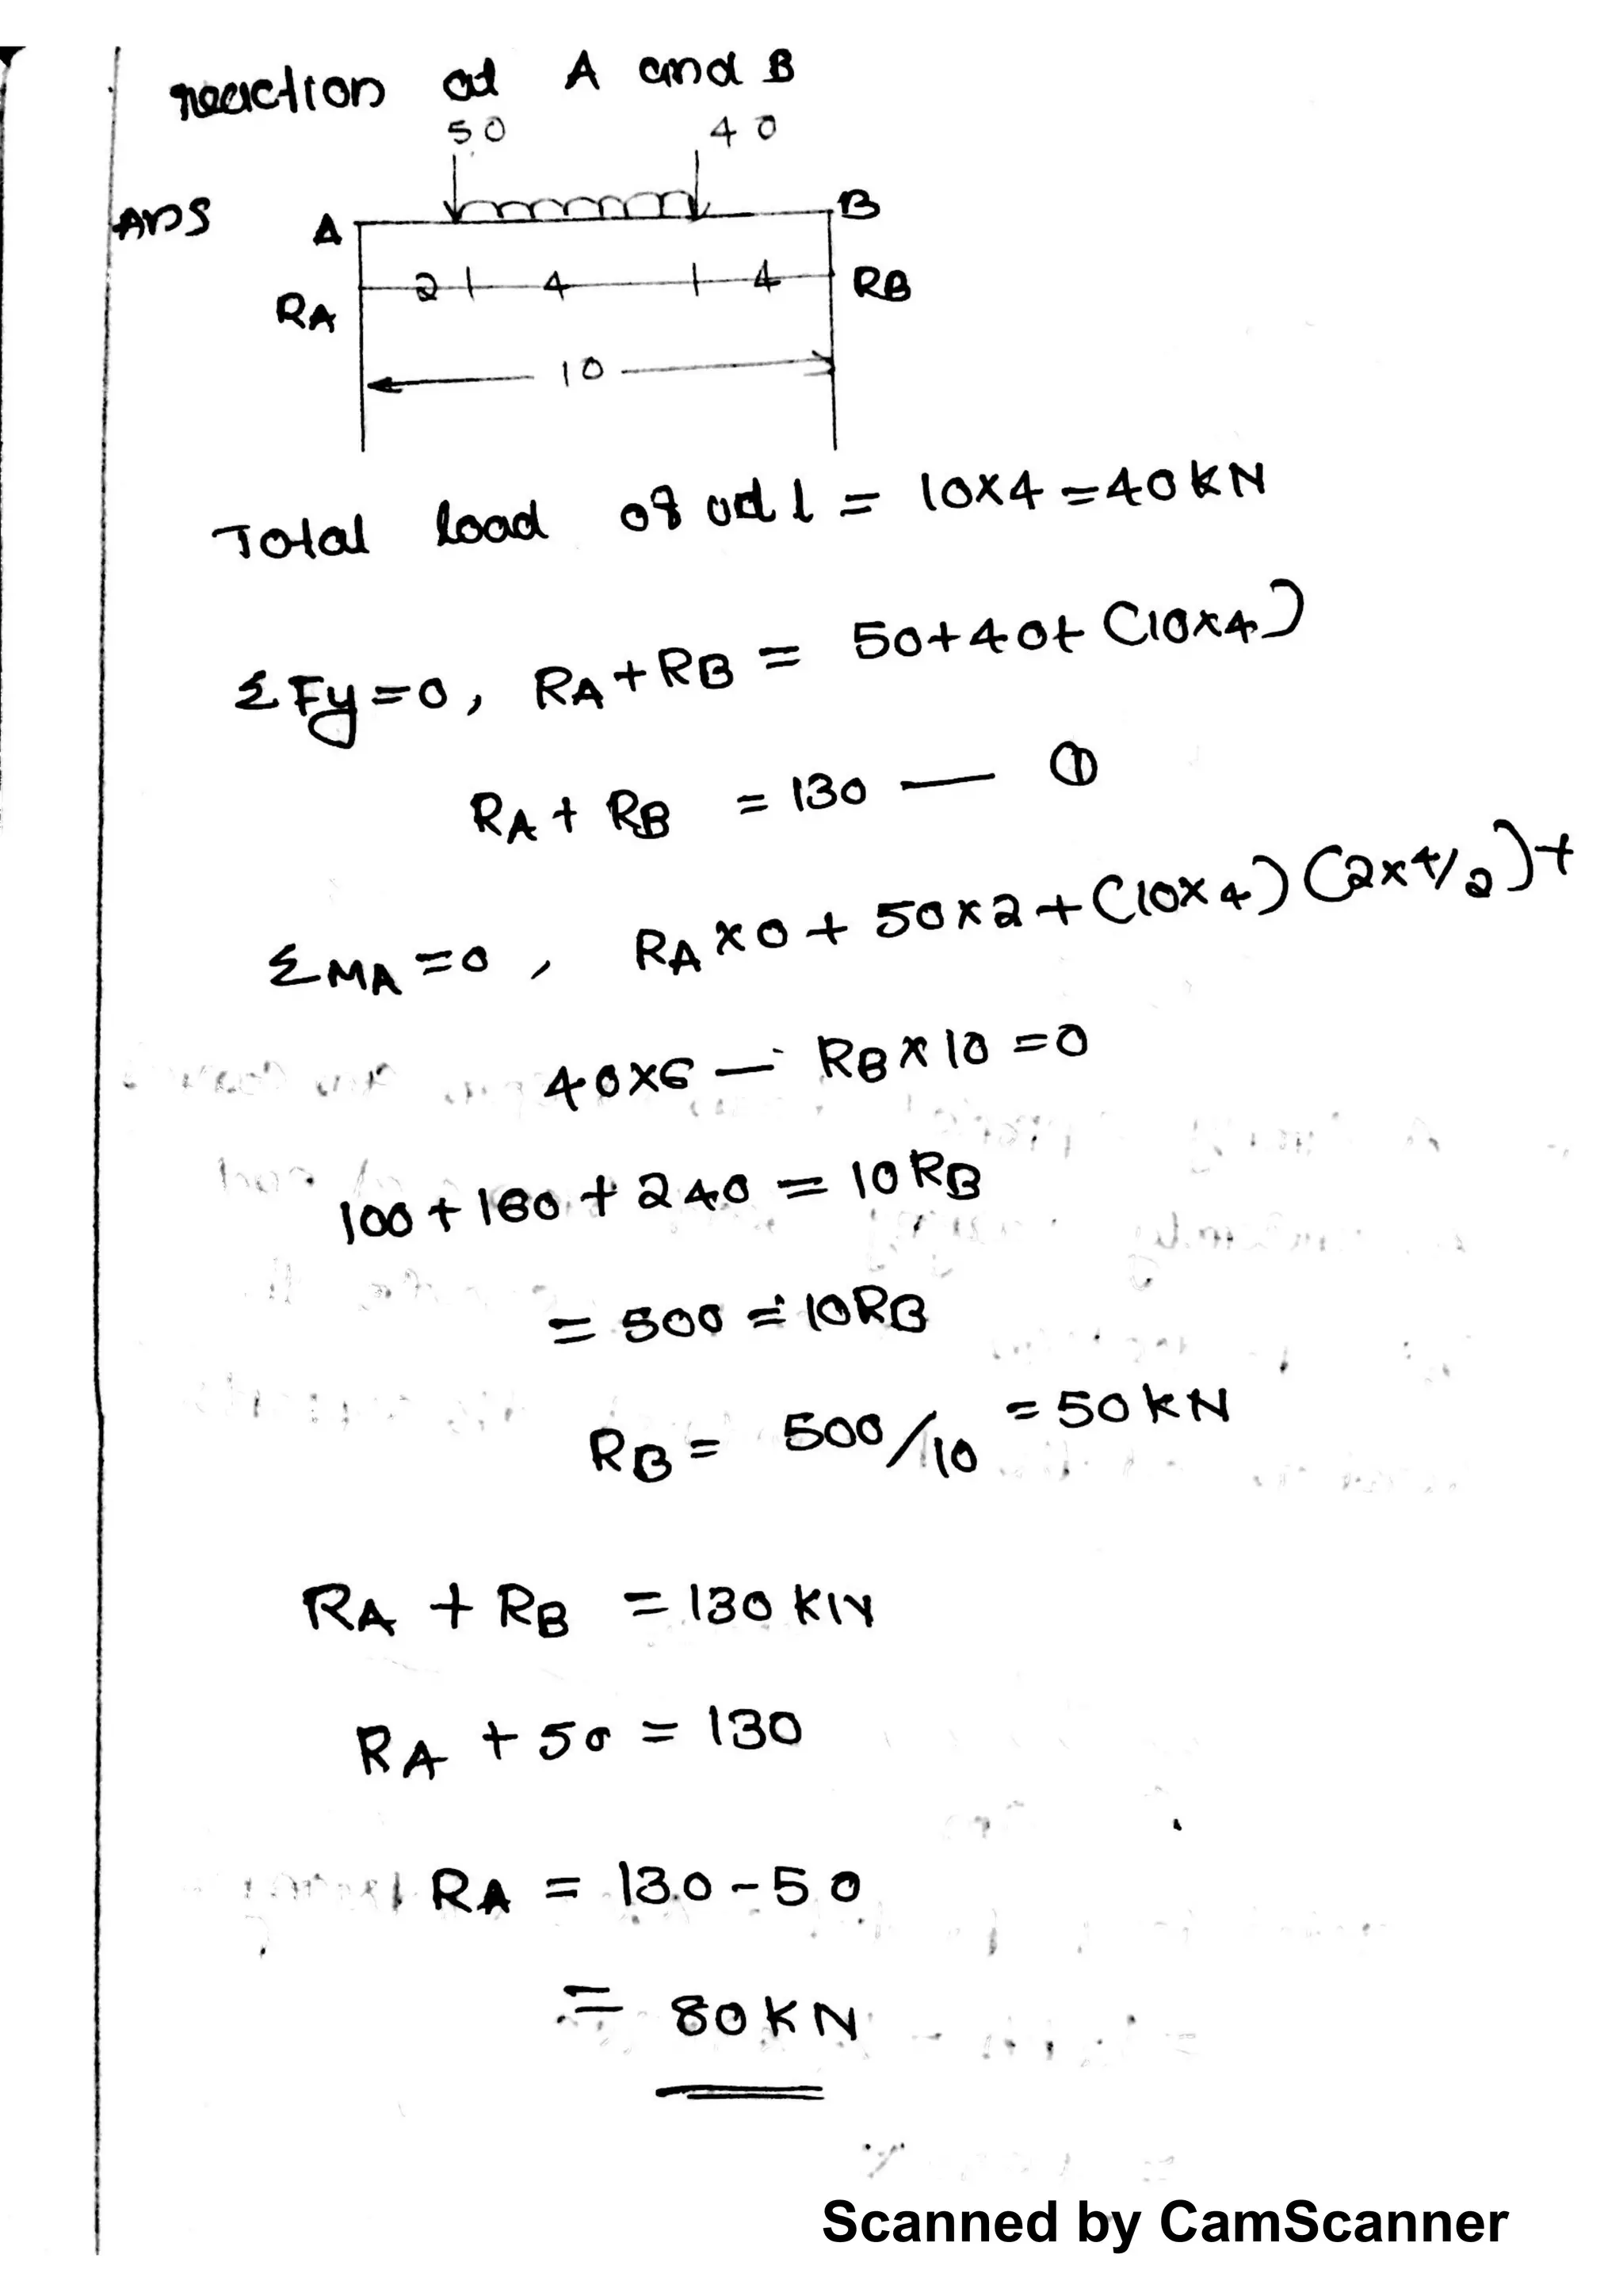 reaction at A and B
50 40
Ans A B
RA 2 4 4 RB
10
Total load of udl = 10×4 = 40KN
ΣFy=0, RA+RB = 50+40+(10×4)
RA + RB = 130 — ①
ΣMA=0, RA×0 + 50×2+(10×4)(2×4/2)+
40×6 — RB×10 =0
100+160+240 = 10RB
= 500 = 10RB
RB = 500/10 = 50KN
RA + RB = 130 KN
RA + 50 = 130
RA = 130-50
= 80KN
Scanned by CamScanner